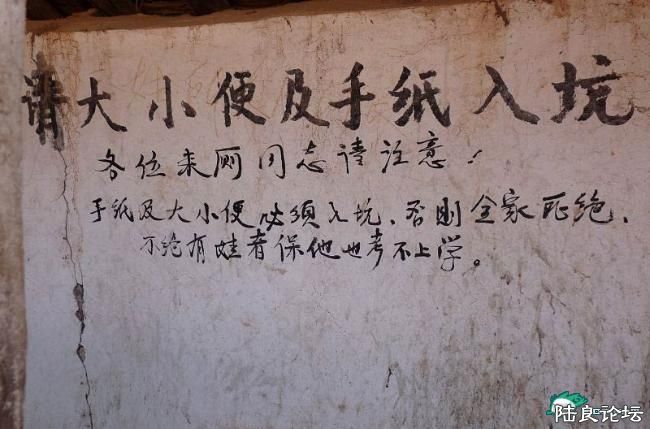 请大小便及手纸入坑
各位来厕同志请注意！
手纸及大小便必须入坑、否则全家死绝、
不绝有娃者保他也考不上学。
陆良论坛